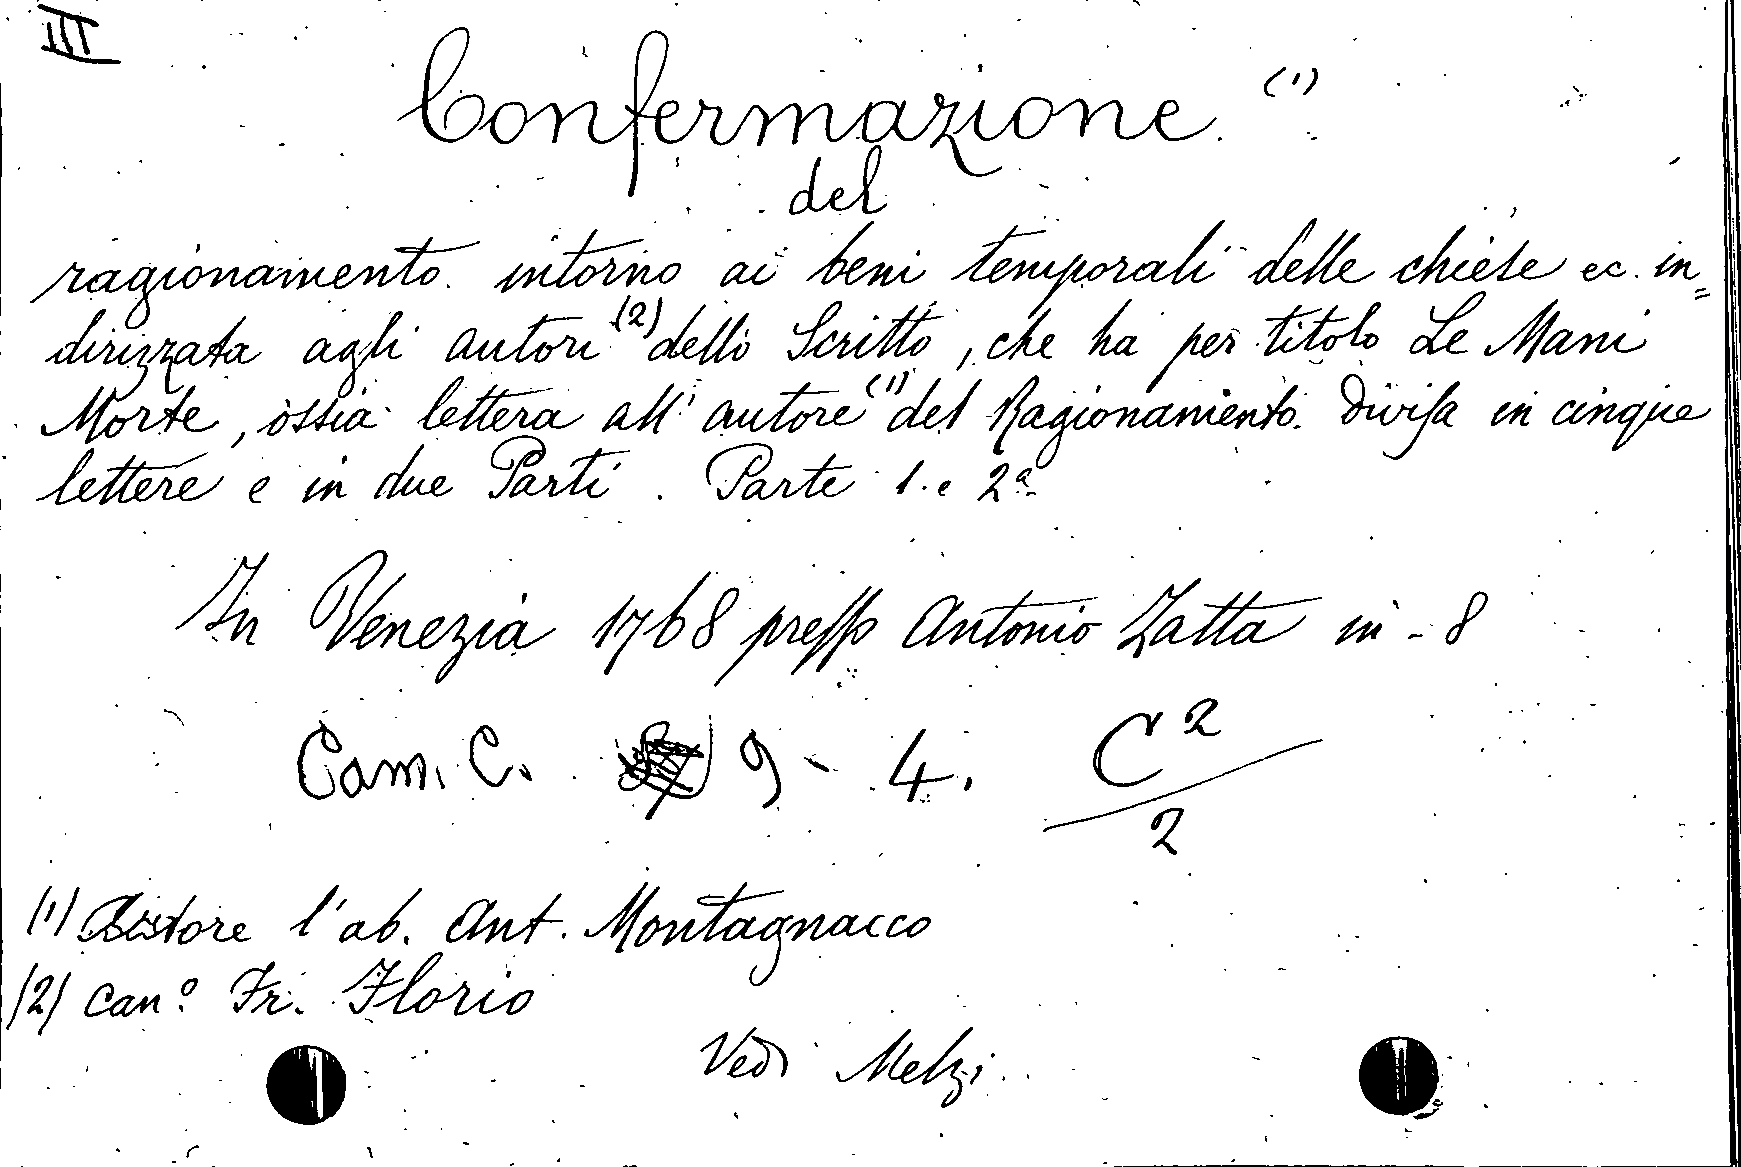 III
Confermazione. (1)
del
ragionamento intorno ai beni temporali delle chiese ec. in=
dirizzata agli autori (2) dello Scritto, che ha per titolo Le Mani
Morte, ossia lettera all'autore (1) del Ragionamento. Divisa in cinque
lettere e in due Parti. Parte 1. e 2ª
In Venezia 1768 presso Antonio Zatta in-8
Cam. C. 9 - 4. C2/2
(1) Autore l'ab. Ant. Montagnacco
(2) can.º Fr. Florio
Vedi Melzi.